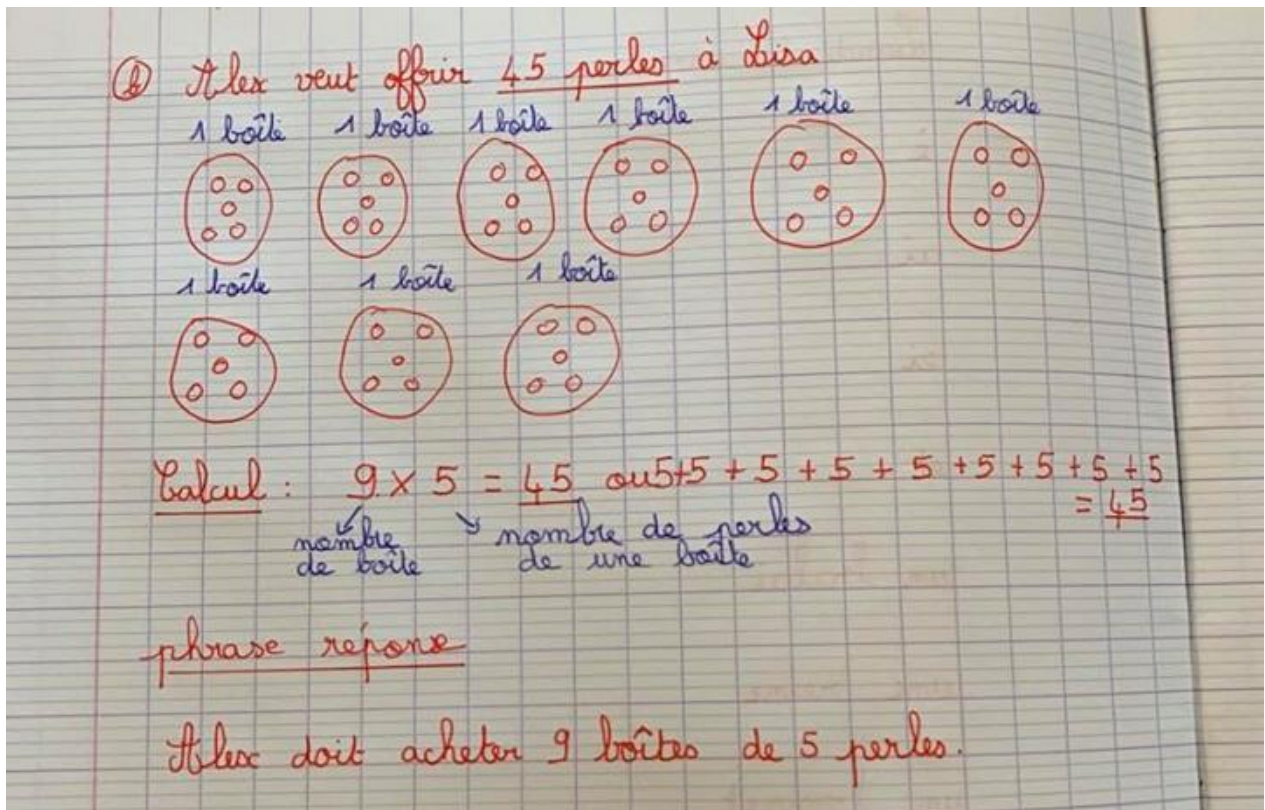 b Alex veut offrir 45 perles à Lisa
1 boîte 1 boîte 1 boîte 1 boîte 1 boîte 1 boîte
1 boîte 1 boîte 1 boîte
Calcul : 9 x 5 = 45 ou 5+5 + 5 + 5 + 5 + 5 + 5 + 5 + 5
= 45
nombre nombre de perles
de boîte de une boîte
phrase réponse
Alex doit acheter 9 boîtes de 5 perles.